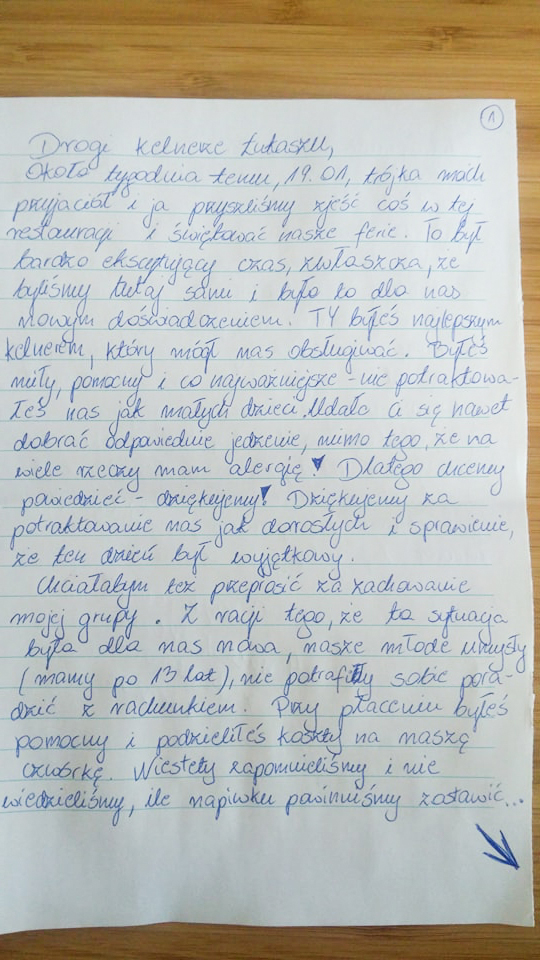 1
Drogi kelnerze Łukaszu,
Około tygodnia temu, 19.01, trójka moich
przyjaciół i ja przyszliśmy zjeść coś w tej
restauracji i świętować nasze ferie. To był
bardzo ekscytujący czas, zwłaszcza, że
byliśmy tutaj sami i było to dla nas
nowym doświadczeniem. TY byłeś najlepszym
kelnerem, który mógł nas obsługiwać. Byłeś
miły, pomocny i co najważniejsze - nie potraktowa-
łeś nas jak małych dzieci. Udało Ci się nawet
dobrać odpowiednie jedzenie, mimo tego, że na
wiele rzeczy mam alergię! Dlatego chcemy
powiedzieć - dziękujemy! Dziękujemy za
potraktowanie nas jak dorosłych i sprawienie,
że ten dzień był wyjątkowy.
Chciałabym też przeprosić za zachowanie
mojej grupy. Z racji tego, że ta sytuacja
była dla nas nowa, nasze młode umysły
(mamy po 13 lat), nie potrafiły sobie pora-
dzić z rachunkiem. Przy płaceniu byłeś
pomocny i podzieliłeś koszty na naszą
czwórkę. Niestety zapomnieliśmy i nie
wiedzieliśmy, ile napiwku powinniśmy zostawić...